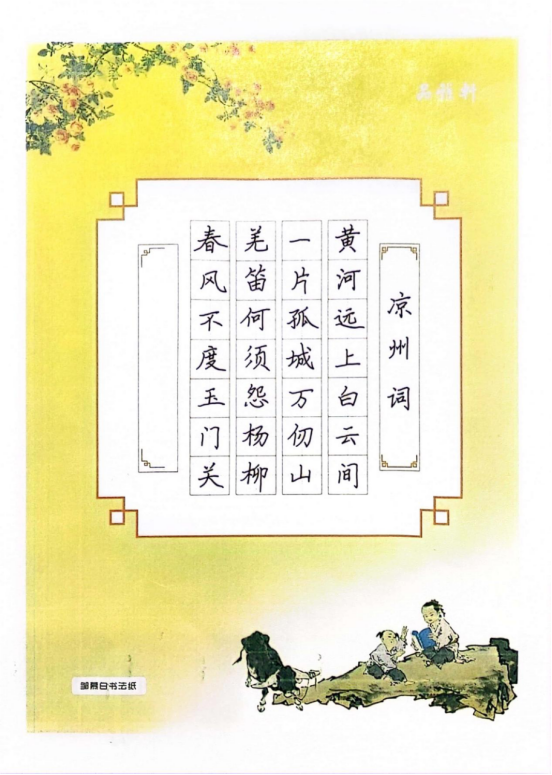 品雅轩
凉州词
黄河远上白云间
一片孤城万仞山
羌笛何须怨杨柳
春风不度玉门关
邹慕白书法纸